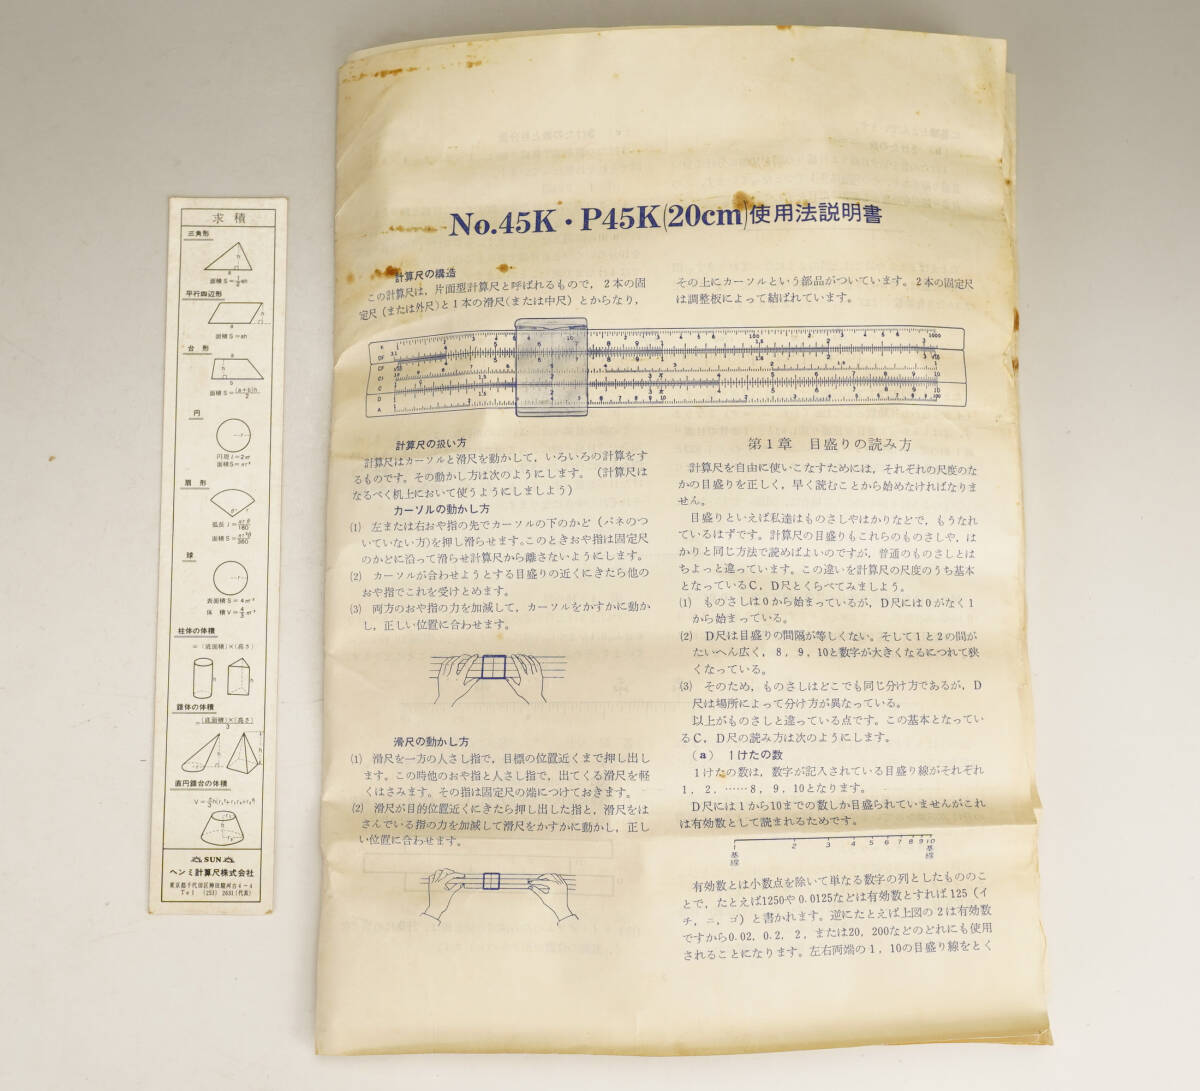 求積
三角形
面積 S=½ah
平行四辺形
面積 S=ah
台形
面積 S=(a+b)h/2
円
円周 l=2πr
面積 S=πr²
扇形
弧長 l=πrθ/180
面積 S=πr²θ/360
球
表面積 S=4πr²
体積 V=4/3πr³
柱体の体積
=(底面積)×(高さ)
錐体の体積
=(底面積)×(高さ)/3
直円錐台の体積
SUN
ヘンミ計算尺株式会社
東京都千代田区神田駿河台4-4
Tel (253) 2631(代表)
No.45K・P45K(20cm)使用法説明書
計算尺の構造
この計算尺は,片面型計算尺と呼ばれるもので,2本の固
定尺(または外尺)と1本の滑尺(または中尺)とからなり,
その上にカーソルという部品がついています。2本の固定尺
は調整板によって結ばれています。
計算尺の扱い方
計算尺はカーソルと滑尺を動かして,いろいろの計算をす
るものです。その動かし方は次のようにします。(計算尺は
なるべく机上において使うようにしましよう)
カーソルの動かし方
(1) 左または右おや指の先でカーソルの下のかど(バネのつ
いていない方)を押し滑らせます。このときおや指は固定尺
のかどに沿って滑らせ計算尺から離さないようにします。
(2) カーソルが合わせようとする目盛りの近くにきたら他の
おや指でこれを受けとめます。
(3) 両方のおや指の力を加減して,カーソルをかすかに動か
し,正しい位置に合わせます。
滑尺の動かし方
(1) 滑尺を一方の人さし指で,目標の位置近くまで押し出し
ます。この時他のおや指と人さし指で,出てくる滑尺を軽
くはさみます。その指は固定尺の端につけておきます。
(2) 滑尺が目的位置近くにきたら押し出した指と,滑尺をは
さんでいる指の力を加減して滑尺をかすかに動かし,正し
い位置に合わせます。
第1章 目盛りの読み方
計算尺を自由に使いこなすためには,それぞれの尺度のな
かの目盛りを正しく,早く読むことから始めなければなりま
せん。
目盛りといえば私達はものさしやはかりなどで,もうなれ
ているはずです。計算尺の目盛りもこれらのものさしや,は
かりと同じ方法で読めばよいのですが,普通のものさしとは
ちょっと違っています。この違いを計算尺の尺度のうち基本
となっているC,D尺とくらべてみましよう。
(1) ものさしは0から始まっているが,D尺には0がなく1
から始まっている。
(2) D尺は目盛りの間隔が等しくない。そして1と2の間が
たいへん広く,8,9,10と数字が大きくなるにつれて狭
くなっている。
(3) そのため,ものさしはどこでも同じ分け方であるが,D
尺は場所によって分け方が異なっている。
以上がものさしと違っている点です。この基本となってい
るC,D尺の読み方は次のようにします。
(a) 1けたの数
1けたの数は,数字が記入されている目盛り線がそれぞれ
1,2,……8,9,10となります。
D尺には1から10までの数しか目盛られていませんがこれ
は有効数として読まれるためです。
1 2 3 4 5 6 7 8 9 10
基線 基線
有効数とは小数点を除いて単なる数字の列としたもののこ
とで,たとえば1250や0.0125などは有効数とすれば125(イ
チ,ニ,ゴ)と書かれます。逆にたとえば上図の2は有効数
ですから0.02,0.2,2,または20,200などのどれにも使用
されることになります。左右両端の1,10の目盛り線をとく